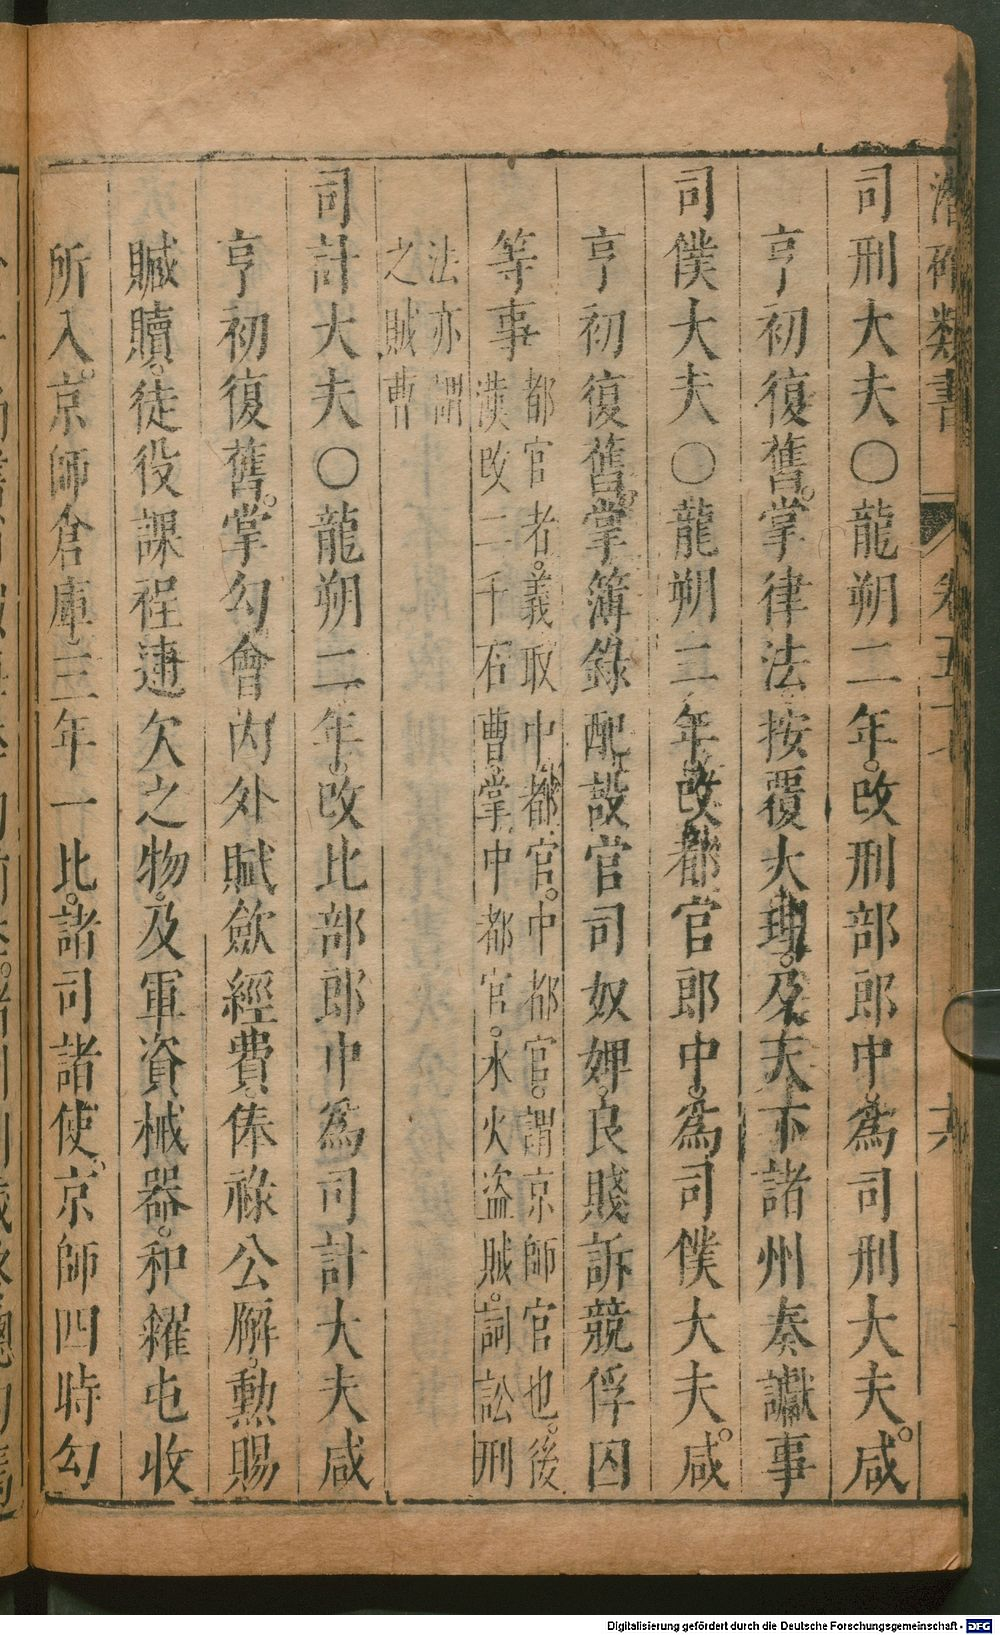 潛確類書 卷五十 六
司刑大夫○龍朔二年。改刑部郎中。為司刑大夫。咸
亨初復舊。掌律法按覆大理。及天下諸州奏讞事
司僕大夫○龍朔二年改都官郎中。為司僕大夫。咸
亨初復舊。掌簿錄配設官司奴婢。良賤訴競俘囚
等事
都官者。義取中都官。中都官。謂京師官也。後
漢改二千石曹。掌中都官。水火盜賊。詞訟刑
法亦謂
之賊曹
司計大夫○龍朔二年。改比部郎中為司計大夫咸
亨初復舊。掌勾會內外賦斂經費。俸祿公廨。勳賜
贓贖。徒役課程逋欠之物。及軍資械器。和糴屯收
所入。京師倉庫。三年一比。諸司諸使。京師四時勾
Digitalisierung gefördert durch die Deutsche Forschungsgemeinschaft - DFG